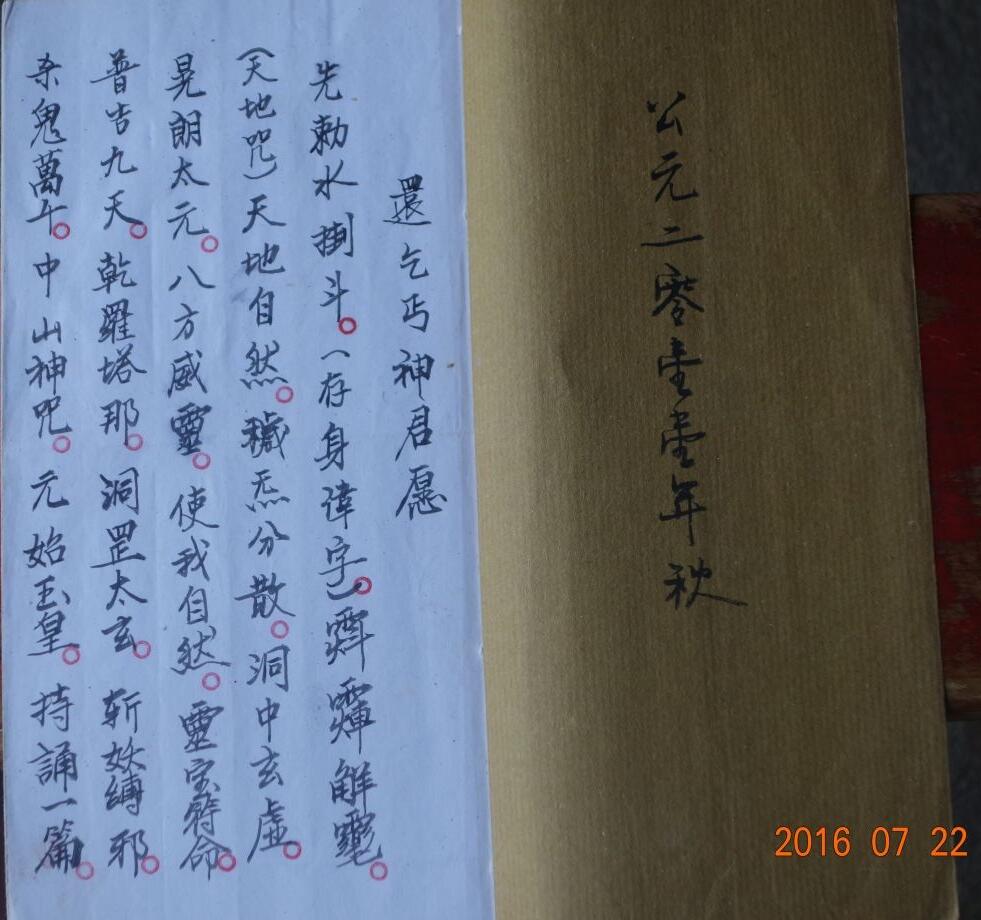 公元二零壹壹年秋
還乞丐神君愿
先勅水掛斗。（存身諱字。）
（天地咒）天地自然。穢炁分散。洞中玄虛。
晃朗太元。八方威靈。使我自然。靈宝符命。
普告九天。乾羅塔那。洞罡太玄。斩妖縛邪。
杀鬼萬千。中山神咒。元始玉皇。持誦一篇。
2016 07 22